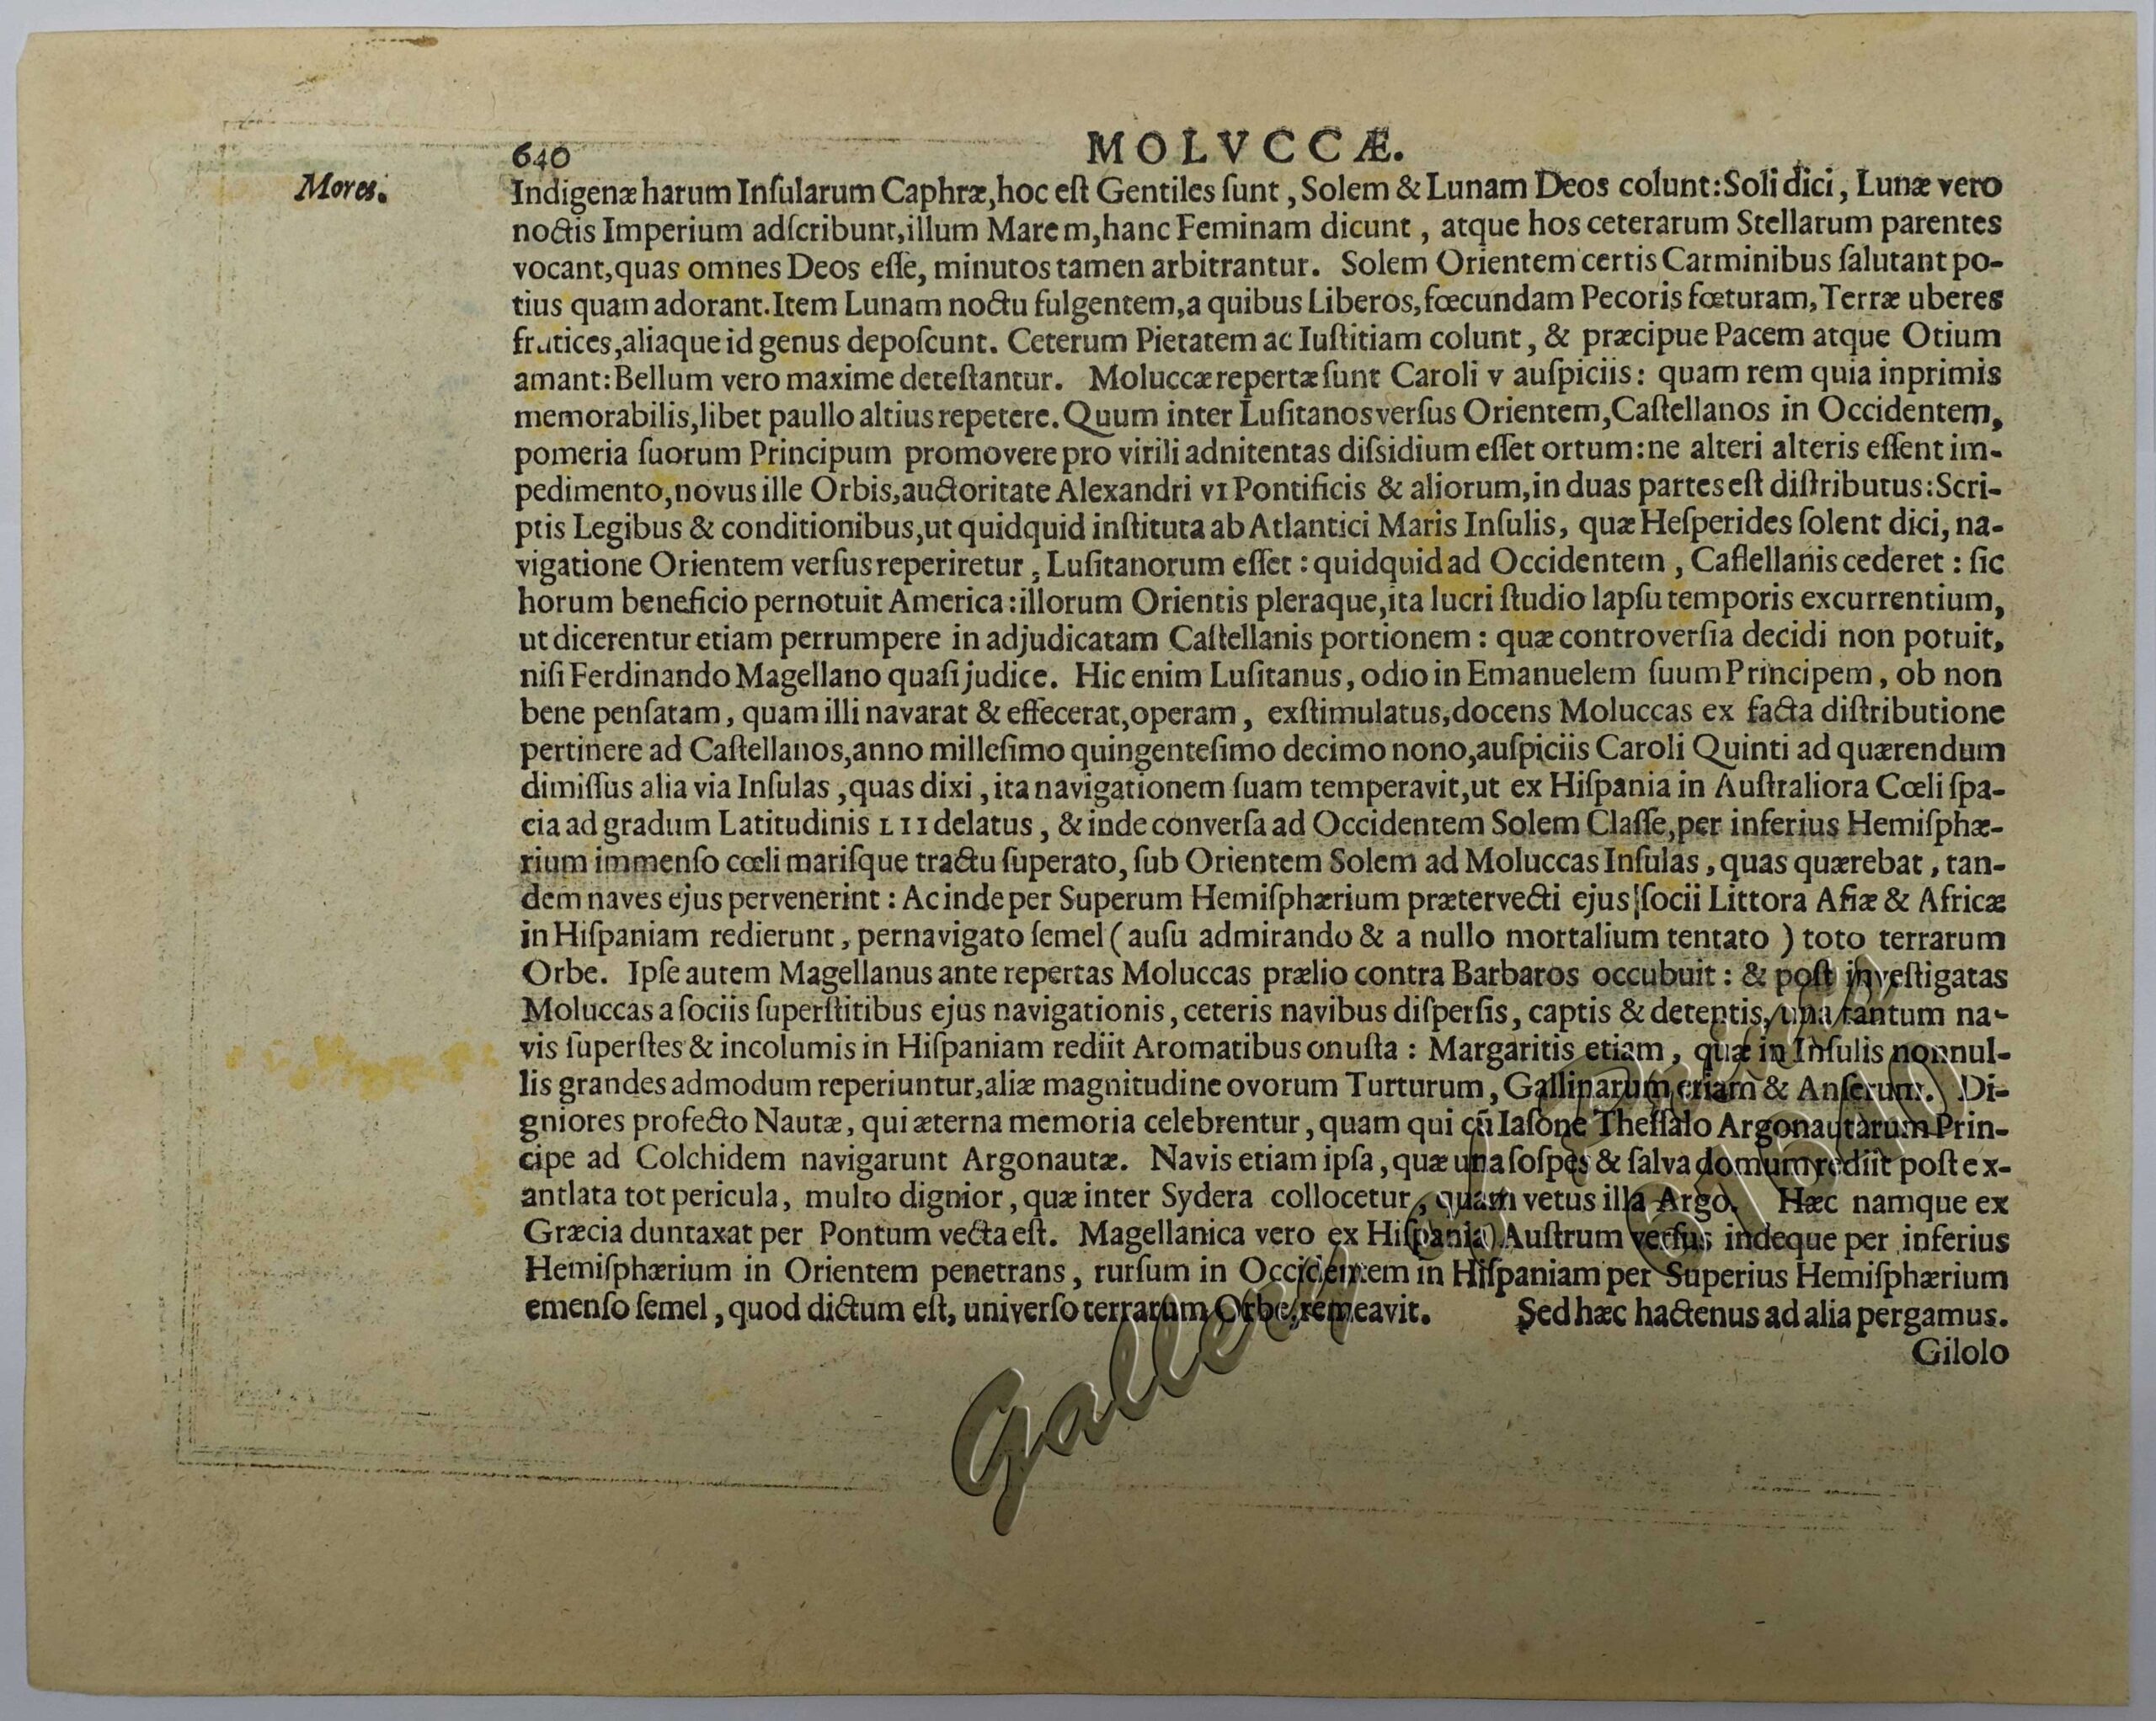 640
MOLVCCÆ.
Mores.
Indigenæ harum Inſularum Caphræ, hoc eſt Gentiles ſunt, Solem & Lunam Deos colunt: Soli dici, Lunæ vero
noctis Imperium adſcribunt, illum Marem, hanc Feminam dicunt, atque hos ceterarum Stellarum parentes
vocant, quas omnes Deos eſſe, minutos tamen arbitrantur. Solem Orientem certis Carminibus ſalutant po-
tius quam adorant. Item Lunam noctu fulgentem, a quibus Liberos, fœcundam Pecoris fœturam, Terræ uberes
frutices, aliaque id genus depoſcunt. Ceterum Pietatem ac Iuſtitiam colunt, & præcipue Pacem atque Otium
amant: Bellum vero maxime deteſtantur. Moluccæ repertæ ſunt Caroli v auſpiciis: quam rem quia inprimis
memorabilis, libet paullo altius repetere. Quum inter Luſitanos verſus Orientem, Caſtellanos in Occidentem,
pomeria ſuorum Principum promovere pro virili adnitentas diſsidium eſſet ortum: ne alteri alteris eſſent im-
pedimento, novus ille Orbis, auctoritate Alexandri VI Pontificis & aliorum, in duas partes eſt diſtributus: Scri-
ptis Legibus & conditionibus, ut quidquid inſtituta ab Atlantici Maris Inſulis, quæ Heſperides ſolent dici, na-
vigatione Orientem verſus reperiretur, Luſitanorum eſſet: quidquid ad Occidentem, Caſtellanis cederet: ſic
horum beneficio pernotuit America: illorum Orientis pleraque, ita lucri ſtudio lapſu temporis excurrentium,
ut dicerentur etiam perrumpere in adjudicatam Caſtellanis portionem: quæ controverſia decidi non potuit,
niſi Ferdinando Magellano quaſi judice. Hic enim Luſitanus, odio in Emanuelem ſuum Principem, ob non
bene penſatam, quam illi navarat & effecerat, operam, exſtimulatus, docens Moluccas ex facta diſtributione
pertinere ad Caſtellanos, anno milleſimo quingenteſimo decimo nono, auſpiciis Caroli Quinti ad quærendum
dimiſſus alia via Inſulas, quas dixi, ita navigationem ſuam temperavit, ut ex Hiſpania in Auſtraliora Cœli ſpa-
cia ad gradum Latitudinis LII delatus, & inde converſa ad Occidentem Solem Claſſe, per inferius Hemiſphæ-
rium immenſo cœli mariſque tractu ſuperato, ſub Orientem Solem ad Moluccas Inſulas, quas quærebat, tan-
dem naves ejus pervenerint: Ac inde per Superum Hemiſphærium prætervecti ejus ſocii Littora Aſiæ & Africæ
in Hiſpaniam redierunt, pernavigato ſemel (auſu admirando & a nullo mortalium tentato) toto terrarum
Orbe. Ipſe autem Magellanus ante repertas Moluccas prælio contra Barbaros occubuit: & poſt inveſtigatas
Moluccas a ſociis ſuperſtitibus ejus navigationis, ceteris navibus diſperſis, captis & detentis, una tantum na-
vis ſuperſtes & incolumis in Hiſpaniam rediit Aromatibus onuſta: Margaritis etiam, quæ in Inſulis nonnul-
lis grandes admodum reperiuntur, aliæ magnitudine ovorum Turturum, Gallinarum etiam & Anſerum. Di-
gniores profecto Nautæ, qui æterna memoria celebrentur, quam qui cū Iaſone Theſſalo Argonautarum Prin-
cipe ad Colchidem navigarunt Argonautæ. Navis etiam ipſa, quæ una ſoſpes & ſalva domum rediit poſt ex-
antlata tot pericula, multo dignior, quæ inter Sydera collocetur, quam vetus illa Argo. Hæc namque ex
Græcia duntaxat per Pontum vecta eſt. Magellanica vero ex Hiſpania Auſtrum verſus indeque per inferius
Hemiſphærium in Orientem penetrans, rurſum in Occidentem in Hiſpaniam per Superius Hemiſphærium
emenſo ſemel, quod dictum eſt, univerſo terrarum Orbe, remeavit. Sed hæc hactenus ad alia pergamus.
Gilolo
Gallery